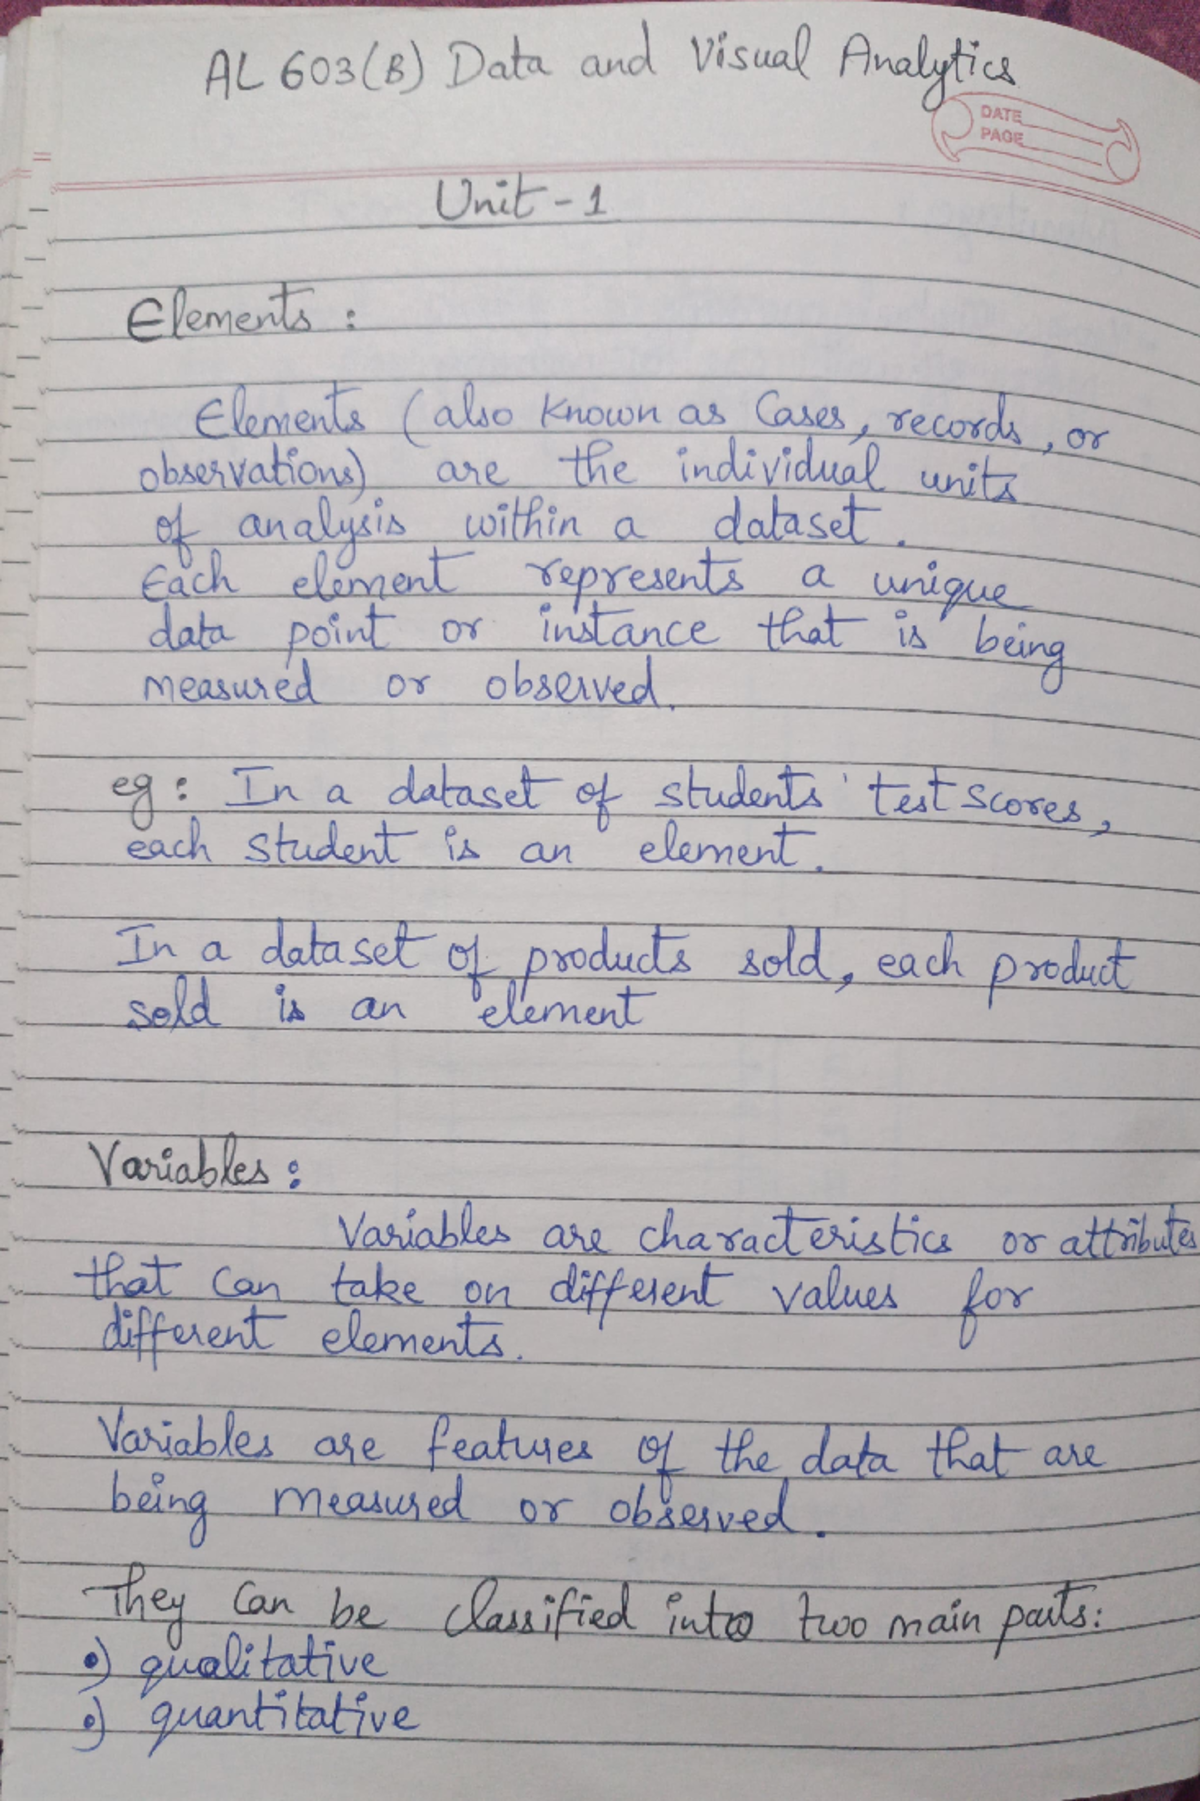 AL 603(B) Data and Visual Analytics
DATE
PAGE
Unit - 1
Elements :
Elements (also known as Cases, records, or
observations) are the individual units
of analysis within a dataset.
Each element represents a unique
data point or instance that is being
measured or observed.
eg : In a dataset of students' test scores,
each student is an element.
In a dataset of products sold, each product
sold is an element
Variables :
Variables are characteristics or attributes
that can take on different values for
different elements.
Variables are features of the data that are
being measured or observed.
They can be classified into two main parts:
•) qualitative
•) quantitative